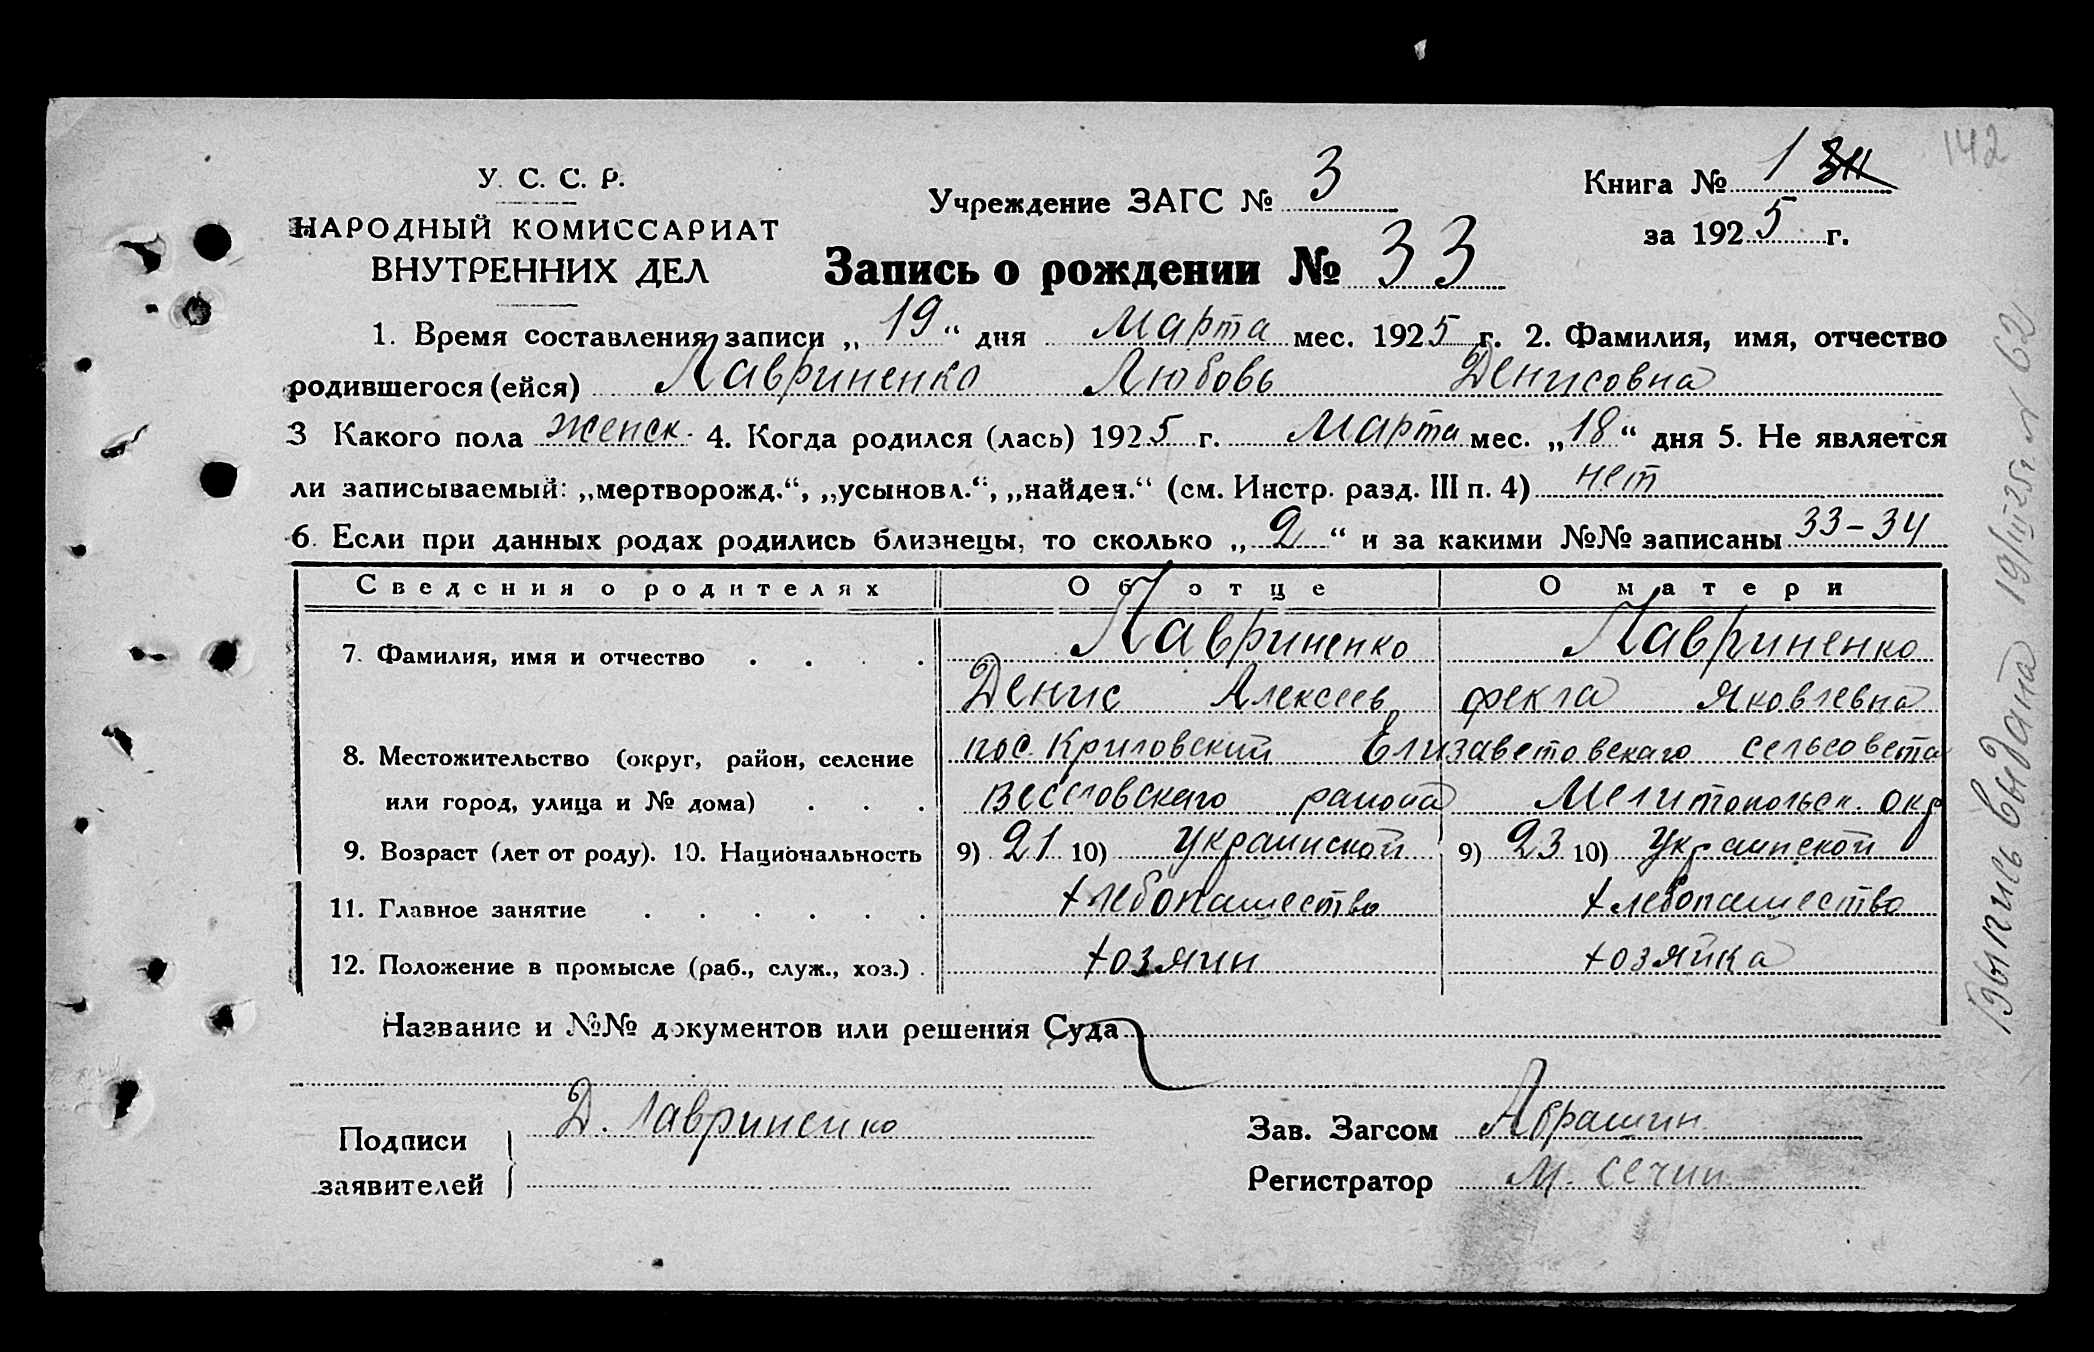 142
У. С. С. Р.
НАРОДНЫЙ КОМИССАРИАТ
ВНУТРЕННИХ ДЕЛ
Учреждение ЗАГС № 3
Книга № 1
за 1925 г.
Запись о рождении № 33
1. Время составления записи „19“ дня Марта мес. 1925 г. 2. Фамилия, имя, отчество
родившегося (ейся) Лавриненко Любовь Денисовна
3 Какого пола женск. 4. Когда родился (лась) 1925 г. Марта мес. „18“ дня 5. Не является
ли записываемый: „мертворожд.“, „усыновл.“, „найден.“ (см. Инстр. разд. III п. 4) нет
6. Если при данных родах родились близнецы, то сколько „2“ и за какими №№ записаны 33-34
Сведения о родителях Об отце О матери
7. Фамилия, имя и отчество . . . . Лавриненко Лавриненко
Денис Алексеев Фекла Яковлевна
8. Местожительство (округ, район, селение пос. Елизаветовскаго сельсовета
или город, улица и № дома) . . . Веселовскаго района Мелитопольск. окр
9. Возраст (лет от роду). 10. Национальность 9) 21 10) Украинской 9) 23 10) Украинской
11. Главное занятие . . . . . . хлебопашество хлебопашество
12. Положение в промысле (раб., служ., хоз.) . хозяин хозяйка
Название и №№ документов или решения Суда
Подписи Д. Лавриненко Зав. Загсом Абрашин
заявителей Регистратор М. Сечин
Выпись выдана 19/III 25 г. № 62